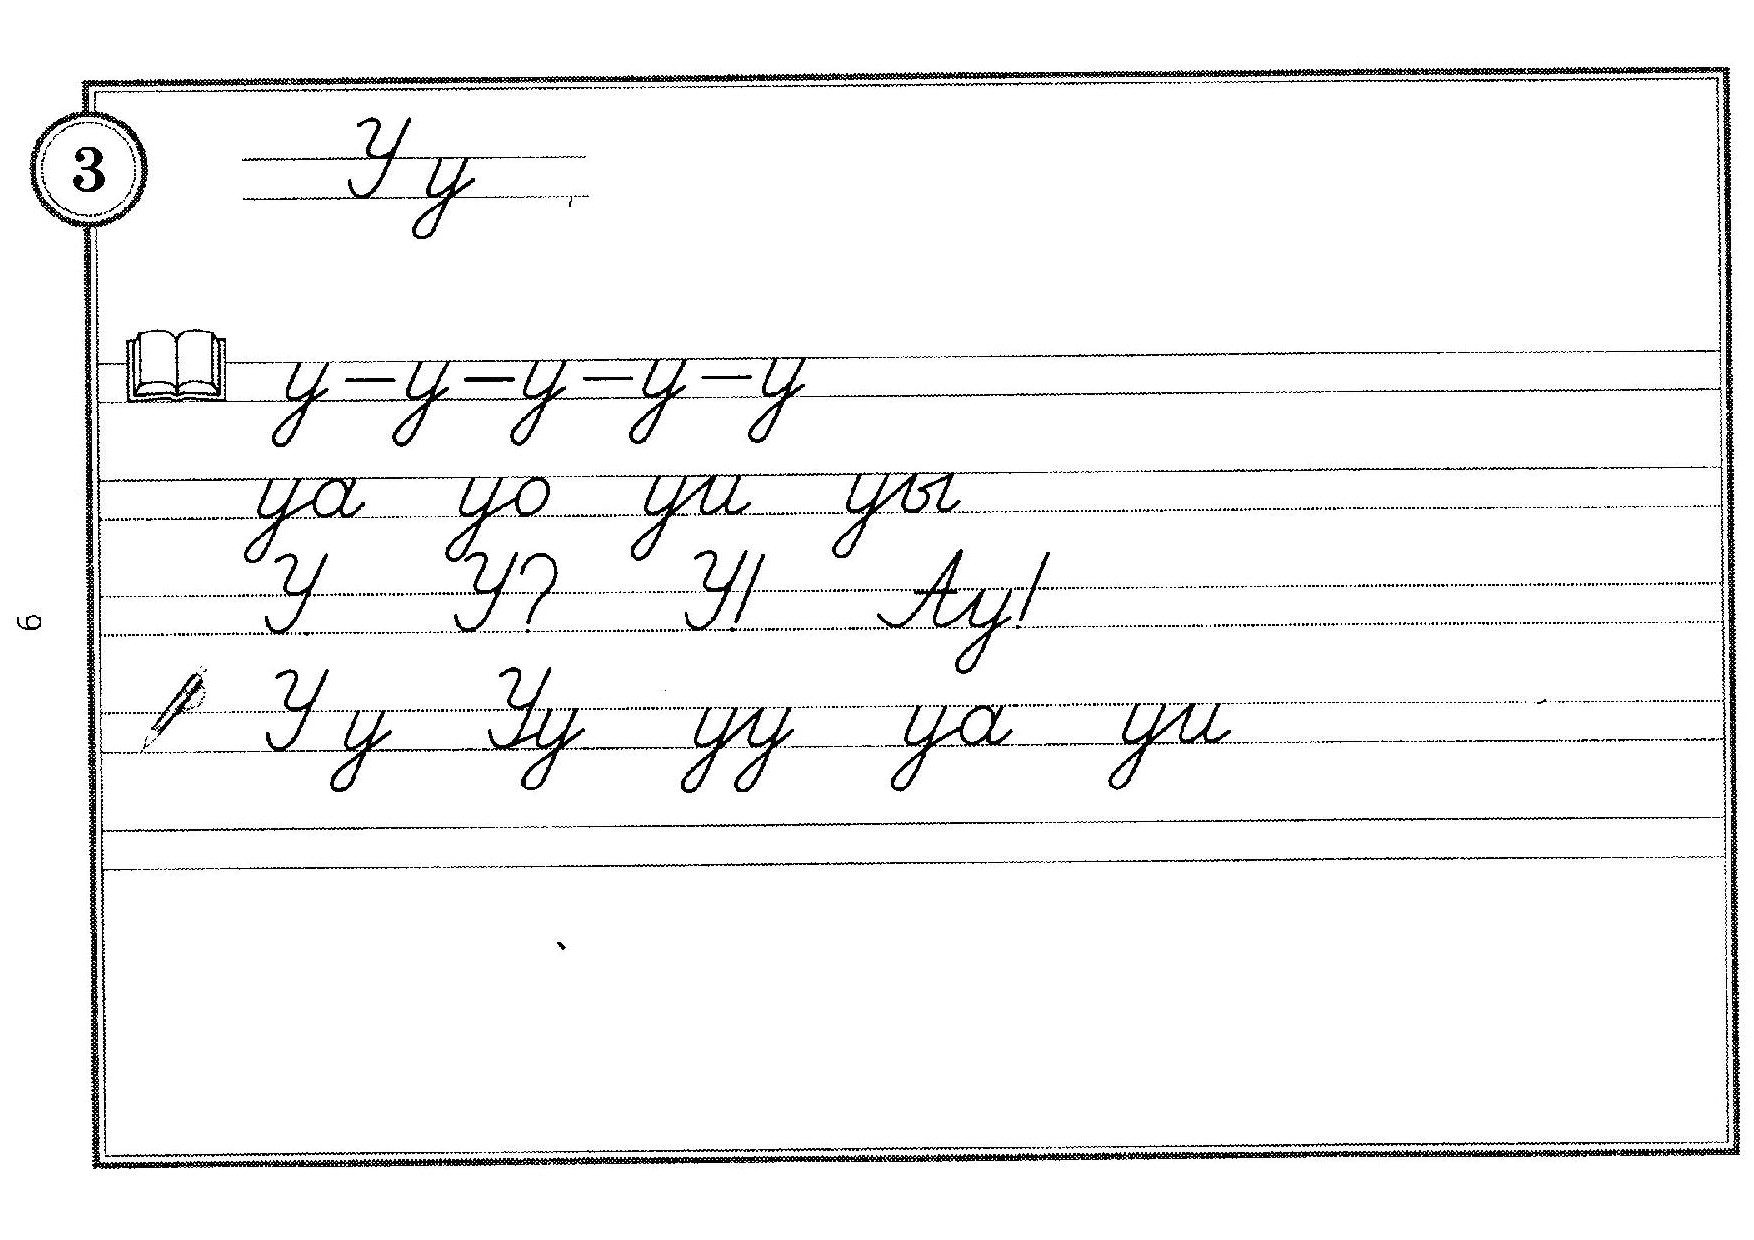 3
У у
у – у – у – у – у
уа уо уи уы
У. У? У! Ау!
У у Уу уу уа уи
6